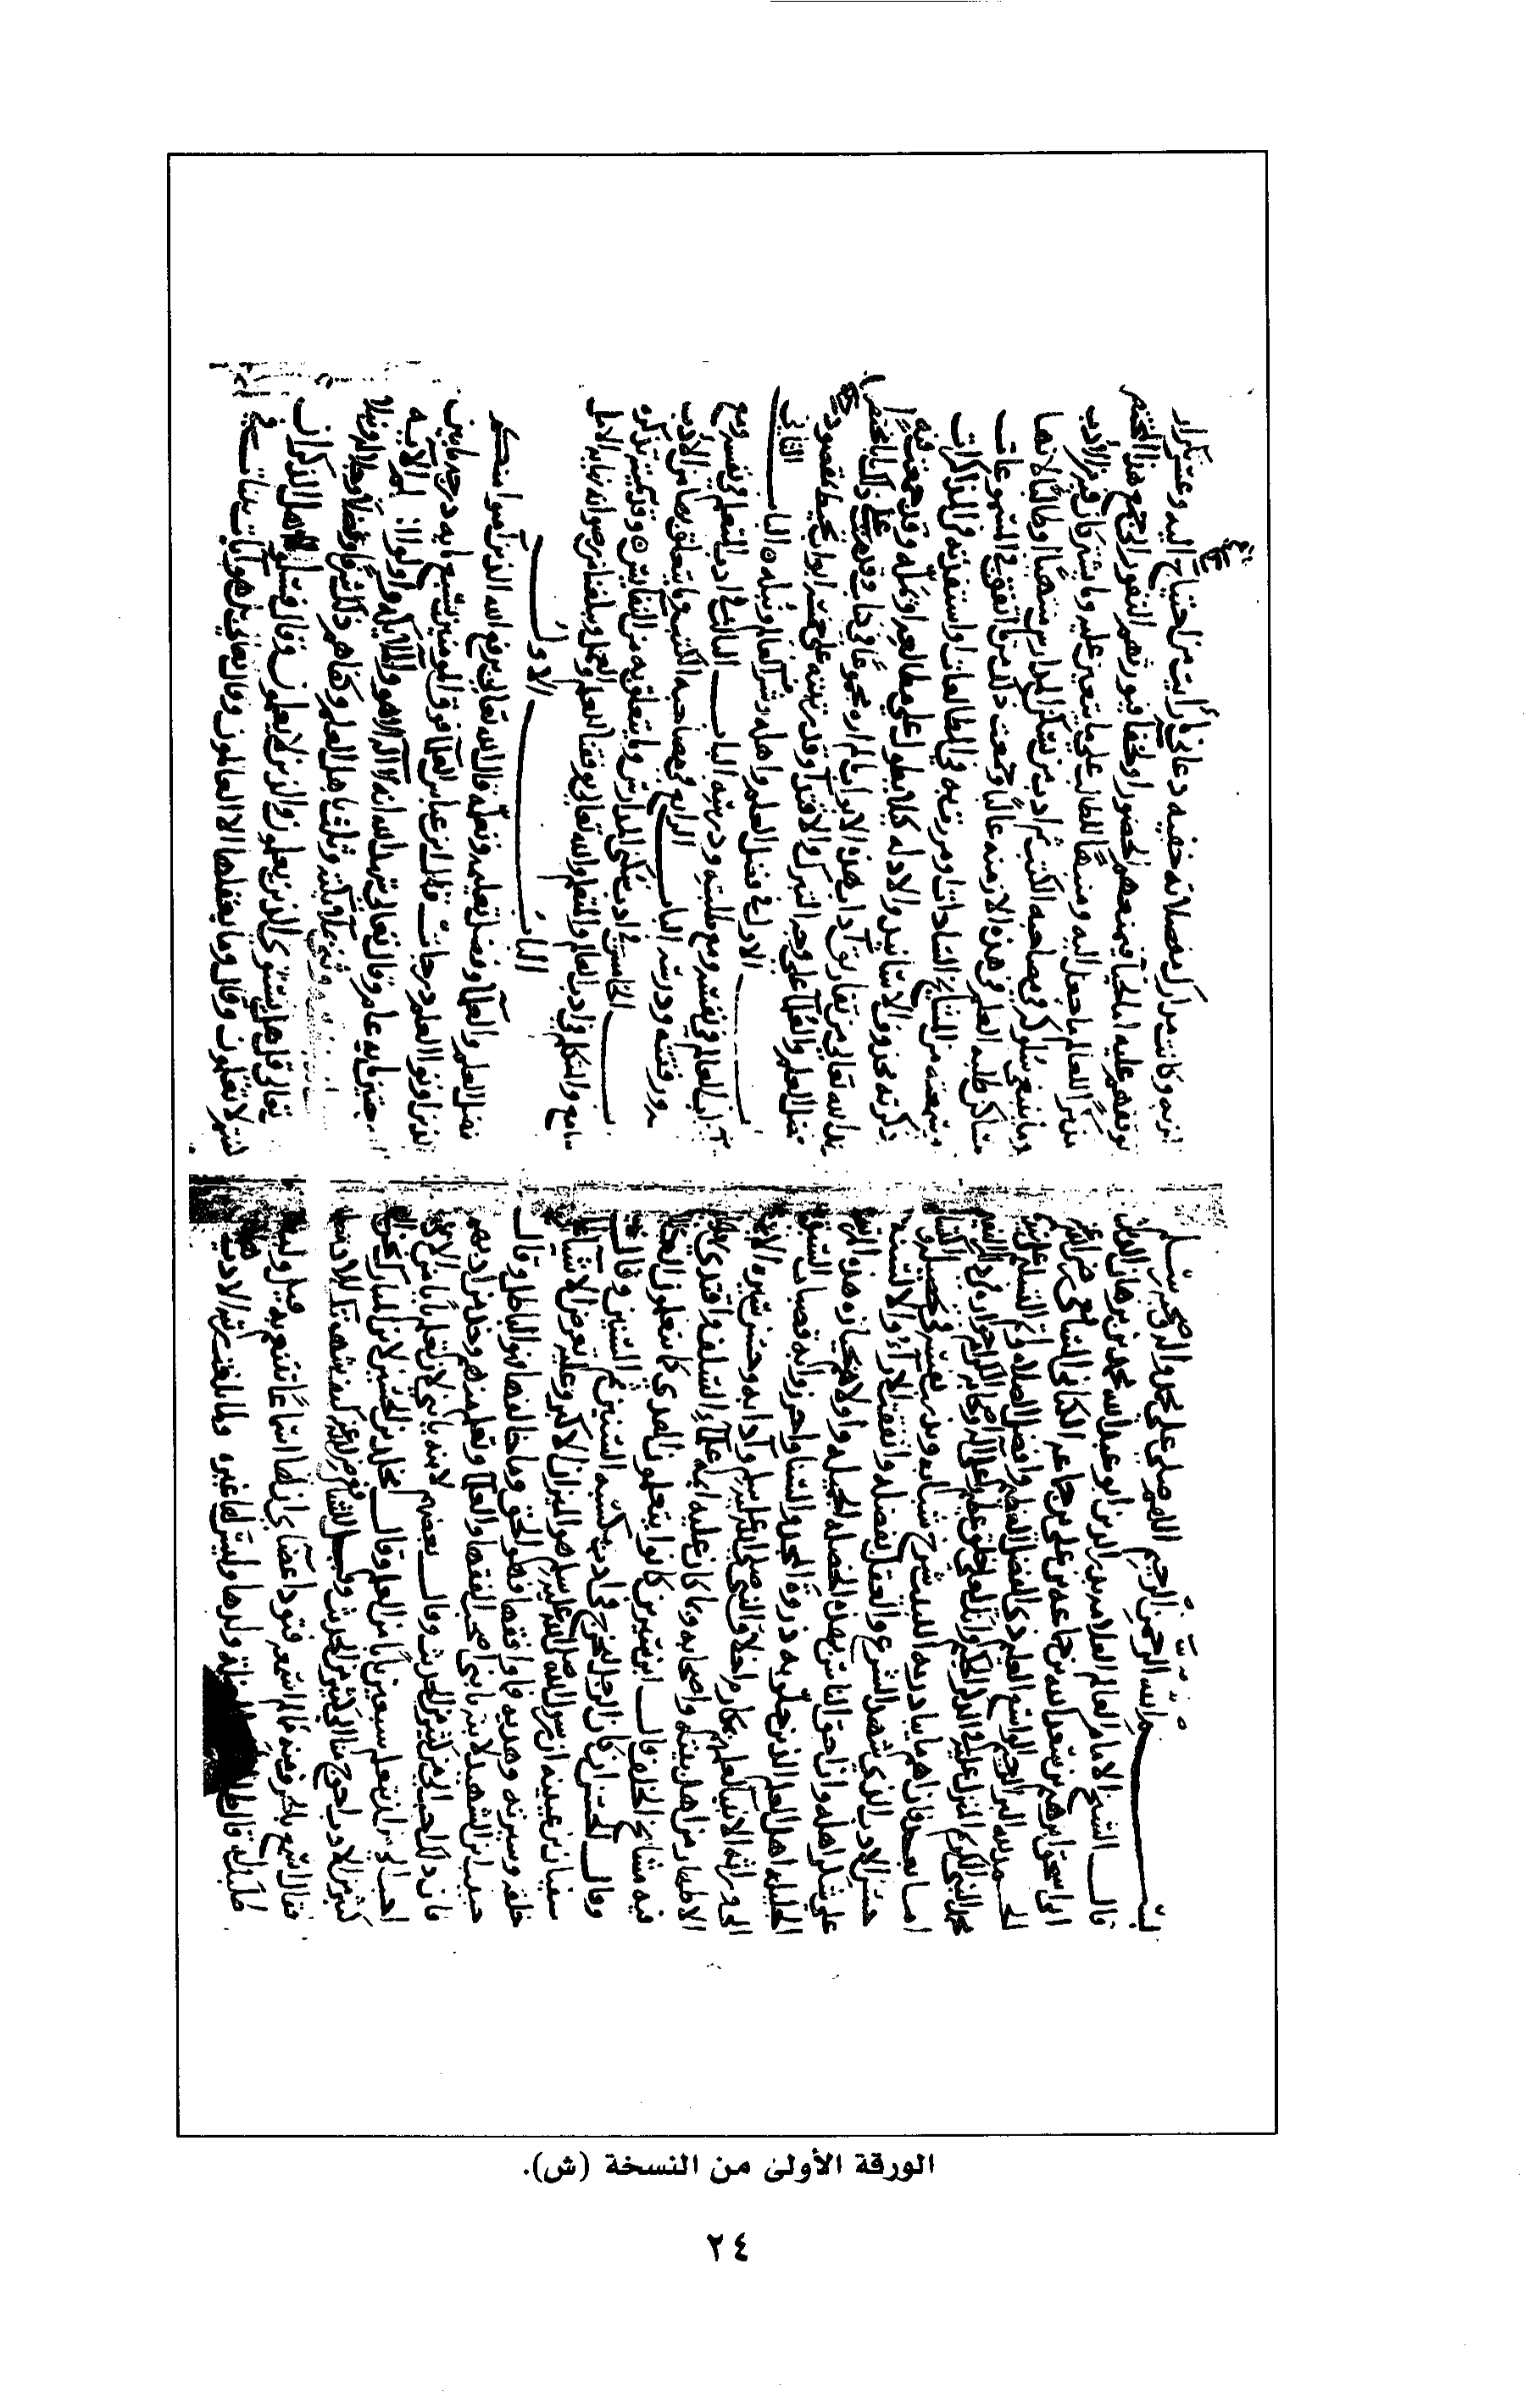 بسم الله الرحمن الرحيم اللهم صلي على محمد واله وصحبه وسلم
قال الشيخ الامام العالم العلامه بدر الدين ابو عبد الله محمد بن برهان الدين
ابى اسحق ابرهيم بن سعد الله بن جماعه بن على بن جماعه الكنانى الشافعى رضى الله عنه
الحمد لله البر الرحيم الواسع العليم ذى الفضل العظيم وافضل الصلاه واتم التسليم على سيدنا
محمد النبى الكريم المنزل عليه فى الذكر الحكيم وانك لعلى خلق عظيم وعلى اله واصحابه الكرام
اما بعد فان اهم ما يبادر به اللبيب شرخ شبابه ويدئب نفسه فى تحصيله
حسن الادب الذى شهد الشرع والعقل بفضله واتفقت الاراء والالسنه
على شكر اهله وان احق الناس بهذه الخصله الجميله واولاهم بحيازه هذه المرتبه
الجليله اهل العلم الذين حلوا به ذروة المجد والسنا واحرزوا به قصبات السبق
الى وراثه الانبيا لعلمهم بمكارم اخلاق النبى صلى الله عليه وسلم وآدابه وحسن سيره الايمه
الاطهار من اهل بيته واصحابه وبما كان عليه ايمه علماء السلف واقتدى بهديهم
فيه مشايخ الخلف قال ابن سيرين كانوا يتعلمون الهدى كما يتعلمون العلم
وقال الحسن ان كان الرجل ليخرج فى ادب يكسبه السنتين ثم السنتين وقال
سفيان بن عيينه ان رسول الله صلى الله عليه وسلم هو الميزان الاكبر وعليه تعرض الاشيا على
خلقه وسيرته وهديه فما وافقها فهو الحق وما خالفها فهو الباطل وقال
حبيب ابن الشهيد لابنه يا بنى اصحب الفقها والعلما وتعلم منهم وخذ من ادبهم
فان ذلك احب الى من كثير من الحديث وقال بعضهم لابنه يا بنى لان تعلم بابا من الادب
احب الى من ان تتعلم سبعين بابا من العلم وقال مخلد بن الحسين لابن المبارك نحن الى
كثير من الادب احوج منا الى كثير من الحديث وقيل للشافعى رضى الله عنه كيف شهوتك للادب
فقال اسمع بالحرف منه مما لم اسمعه فتود اعضآى ان لها اسماعا تتنعم به قيل وكيف
طلبك له قال طلب المراة المضلة ولدها وليس لها غيره ولما بلغت رتبه الادب
هذه المزيه وكانت مدارك مفصلاته خفيه دعانى ما رايت من احتياج الطلبه اليه وعسر تكرار
توقفهم عليه اما لحياء فيمنعهم الحضور او لجفآ فيورثهم النفور الى جمع هذا المختصر
مذكرا للعالم ما جعل اليه ومنبها للطالب على ما يتعين عليه وما يشتركان فيه من الادب
وما ينبغى سلوكه فى مصاحبه الكتب ثم ادب من سكن المدارس منتهيا او طالبا لانها
مساكن طلبه العلم فى هذه الازمنه غالبا وجمعت ذلك مما اتفق فى المسموعات
او سمعته من المشايخ السادات او مررت به فى المطالعات او استفدته فى المذاكرات
وذكرته محذوف الاسانيد والادله كيلا يطول على مطالعه او يمله وقد جمعت فيه
بحمد الله تعالى من تفاريق آداب هذه الابواب ما لم اره مجموعا فى كتاب وقدمت على ذلك بابا مختصرا
فى فضل العلم والعلمآ على وجه التبرك والاقتدآ وقد رتبته على خمسه ابواب تحيط بمقصود الكتاب
الباب الاول فى فضل العلم واهله وشرف العالم ونبله الباب الثانى
فى آداب العالم فى نفسه ومع طلبته ودرسه الباب الثالث فى ادب المتعلم فى نفسه ومع
شيخه ورفقته ودرسه الباب الرابع فى مصاحبه الكتب وما يتعلق بها من الادب
الباب الخامس فى ادب سكنى المدارس وما يتعلق به من النفايس وقد سميته تذكره
السامع والمتكلم فى ادب العالم والمتعلم والله تعالى يوفقنا للعلم والعمل ويبلغنا من رضوانه نهايه الامل
الباب الاول
فى فضل العلم والعلمآ وفضل تعليمه وتعلمه قال الله تعالى يرفع الله الذين آمنوا منكم
والذين اوتوا العلم درجات قال ابن عباس العلمآ فوق المومنين
وقال تعالى شهد الله انه لا اله الا هو والملايكه واولوا العلم الآيه
بدا سبحانه بنفسه وثنى بملايكته وثلث باهل العلم وكفاهم ذلك شرفا وفضلا وجلالا ونبلا
وقال تعالى قل هل يستوى الذين يعلمون والذين لا يعلمون وقال فسئلوا اهل الذكر ان
كنتم لا تعلمون وقال وما يعقلها الا العالمون وقال تعالى بل هو آيات بينات فى
الورقة الأولى من النسخة (ش).
٢٤